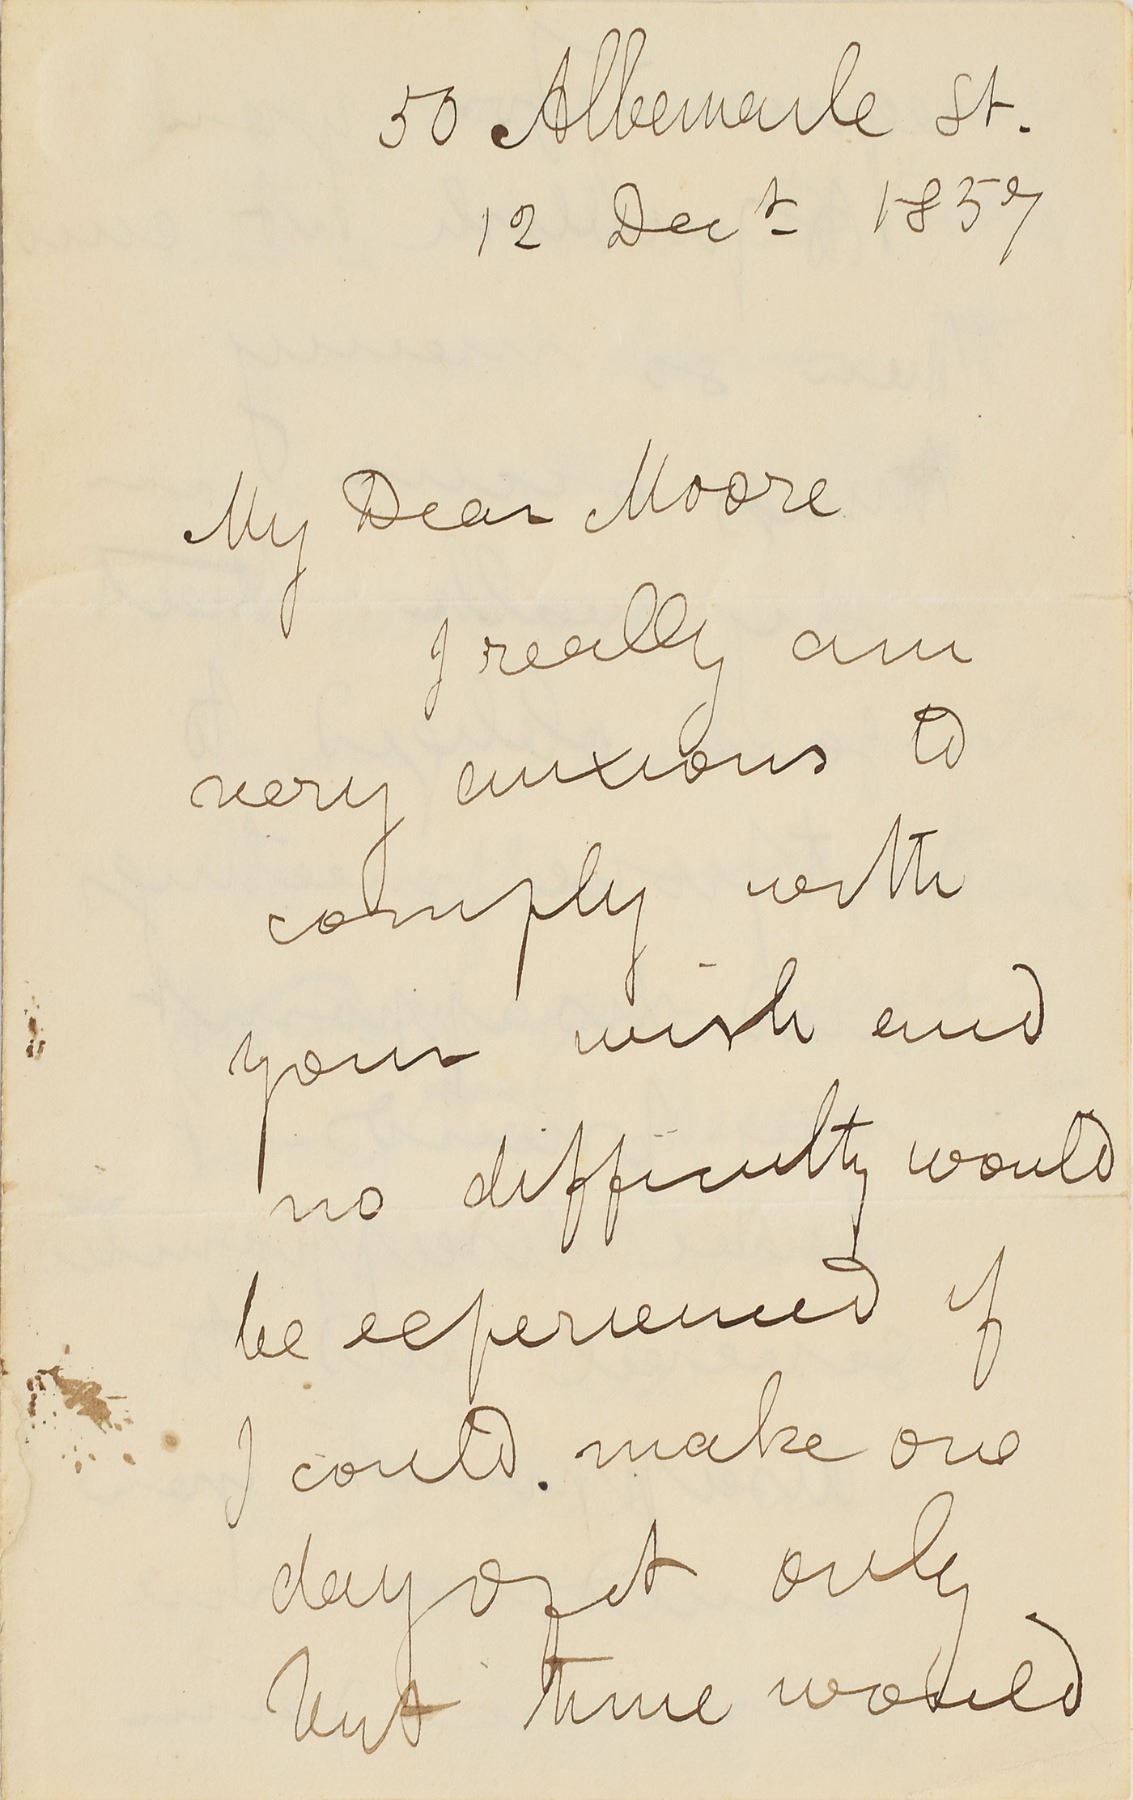 50 Albemarle St.
12 Decr 1857
My Dear Moore
I really am
very anxious to
comply with
your wish and
no difficulty would
be experienced if
I could. make one
day of it only
but time would